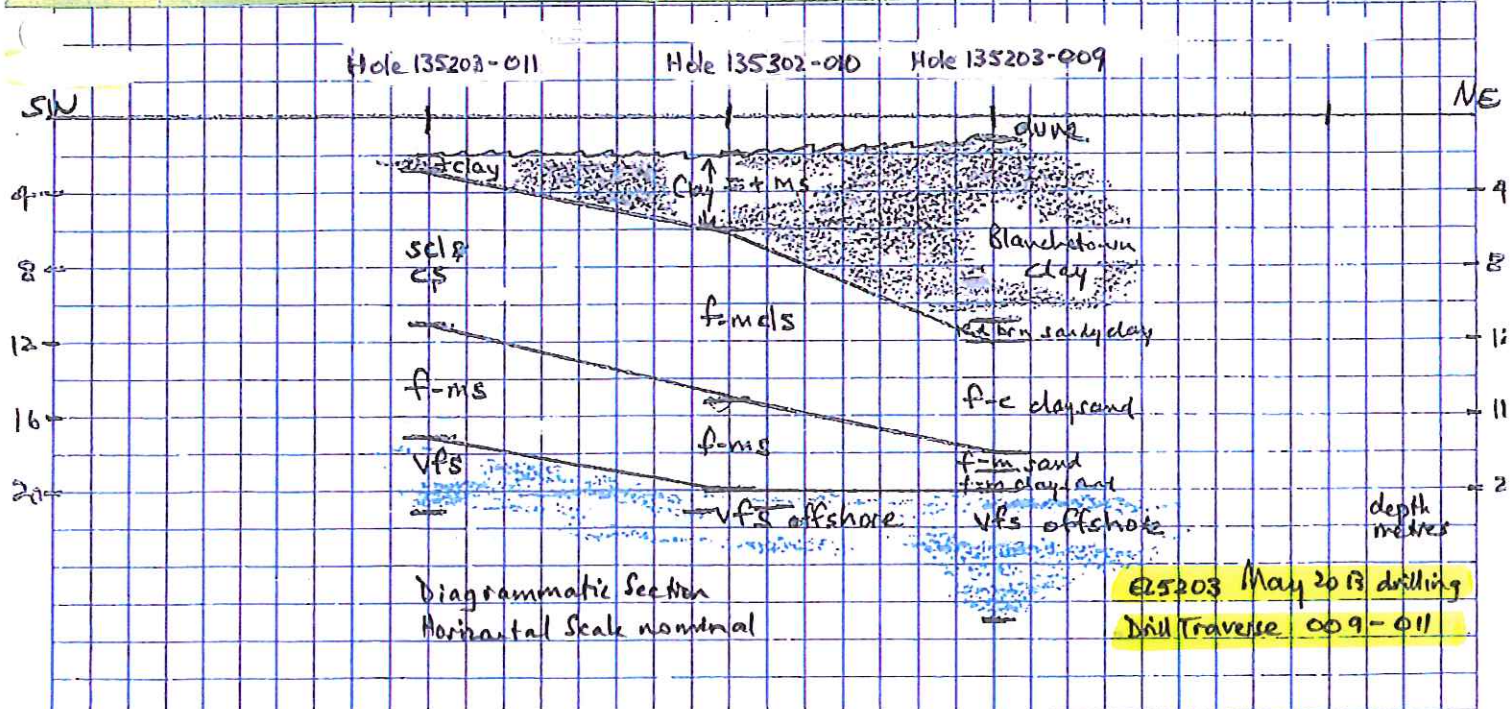 Hole 135203-011 Hole 135302-010 Hole 135203-009
SW NE
dune
+clay
Clay + ms
4 4
scls
cs
Blanchetown
clay
8 8
f-mcls
brn sandy clay
12 12
f-ms
f-c clay sand
16
f-ms
vfs
f-m sand
f-m clay sand
20 2
vfs offshore
vfs offshore
depth
metres
Diagrammatic Section
Horizontal Scale nominal
EL5203 May 2013 drilling
Drill Traverse 009-011